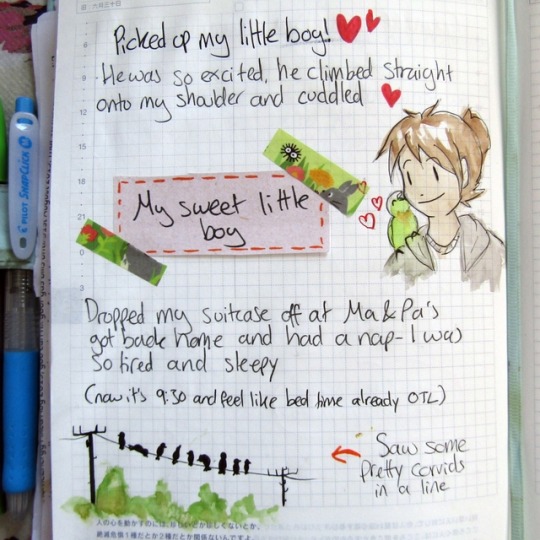 六月三十日
Picked up my little boy!
He was so excited, he climbed straight
onto my shoulder and cuddled
My sweet little
boy
Dropped my suitcase off at Ma & Pa's
got back home and had a nap- I was
so tired and sleepy
(now it's 9:30 and feel like bed time already OTL)
Saw some
pretty corvids
in a line
人の心を動かすのには、
絶滅危惧1種だとか2種だとか関係ないんですよ。
6
9
12
15
18
21
0
3
PILOT SNAPCLICK